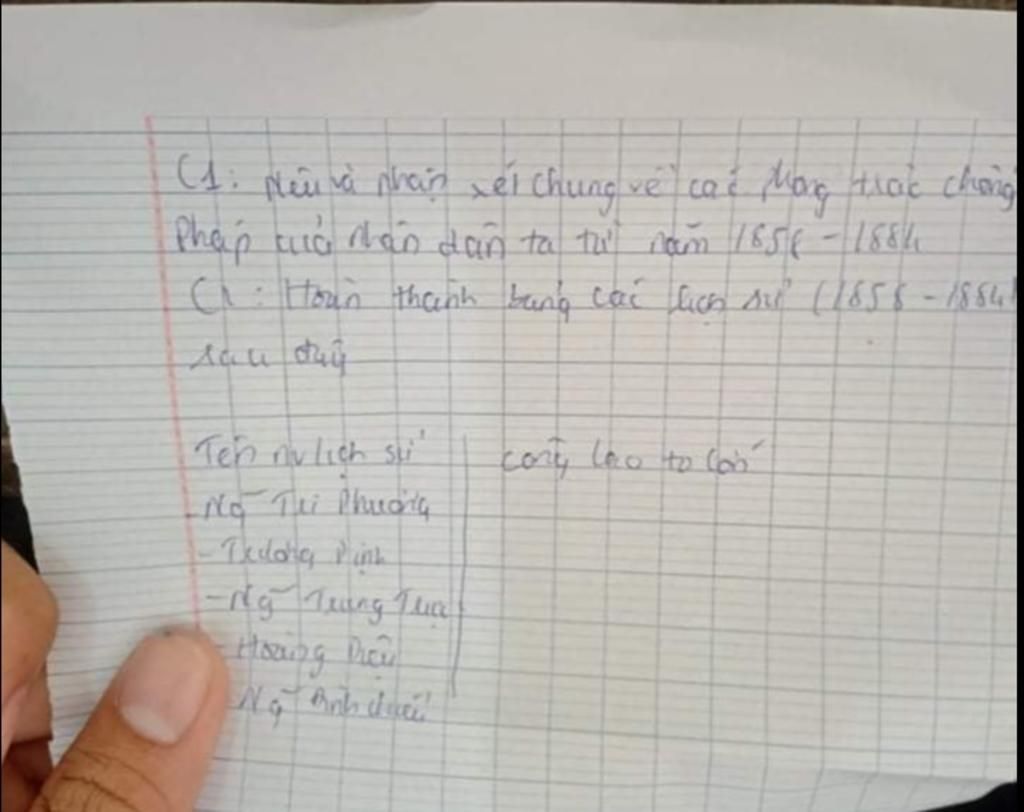 C1: Nêu và nhận xét chung về các phong trào chống
Pháp của nhân dân ta từ năm 1858 - 1884
C2: Hoàn thành bảng các lịch sử (1858 - 1884)
sau đây
Tên nv lịch sử | công lao to lớn
- Ng~ Tri Phương
- Trương Định
- Ng~ Trung Trực
- Hoàng Diệu
Ng~